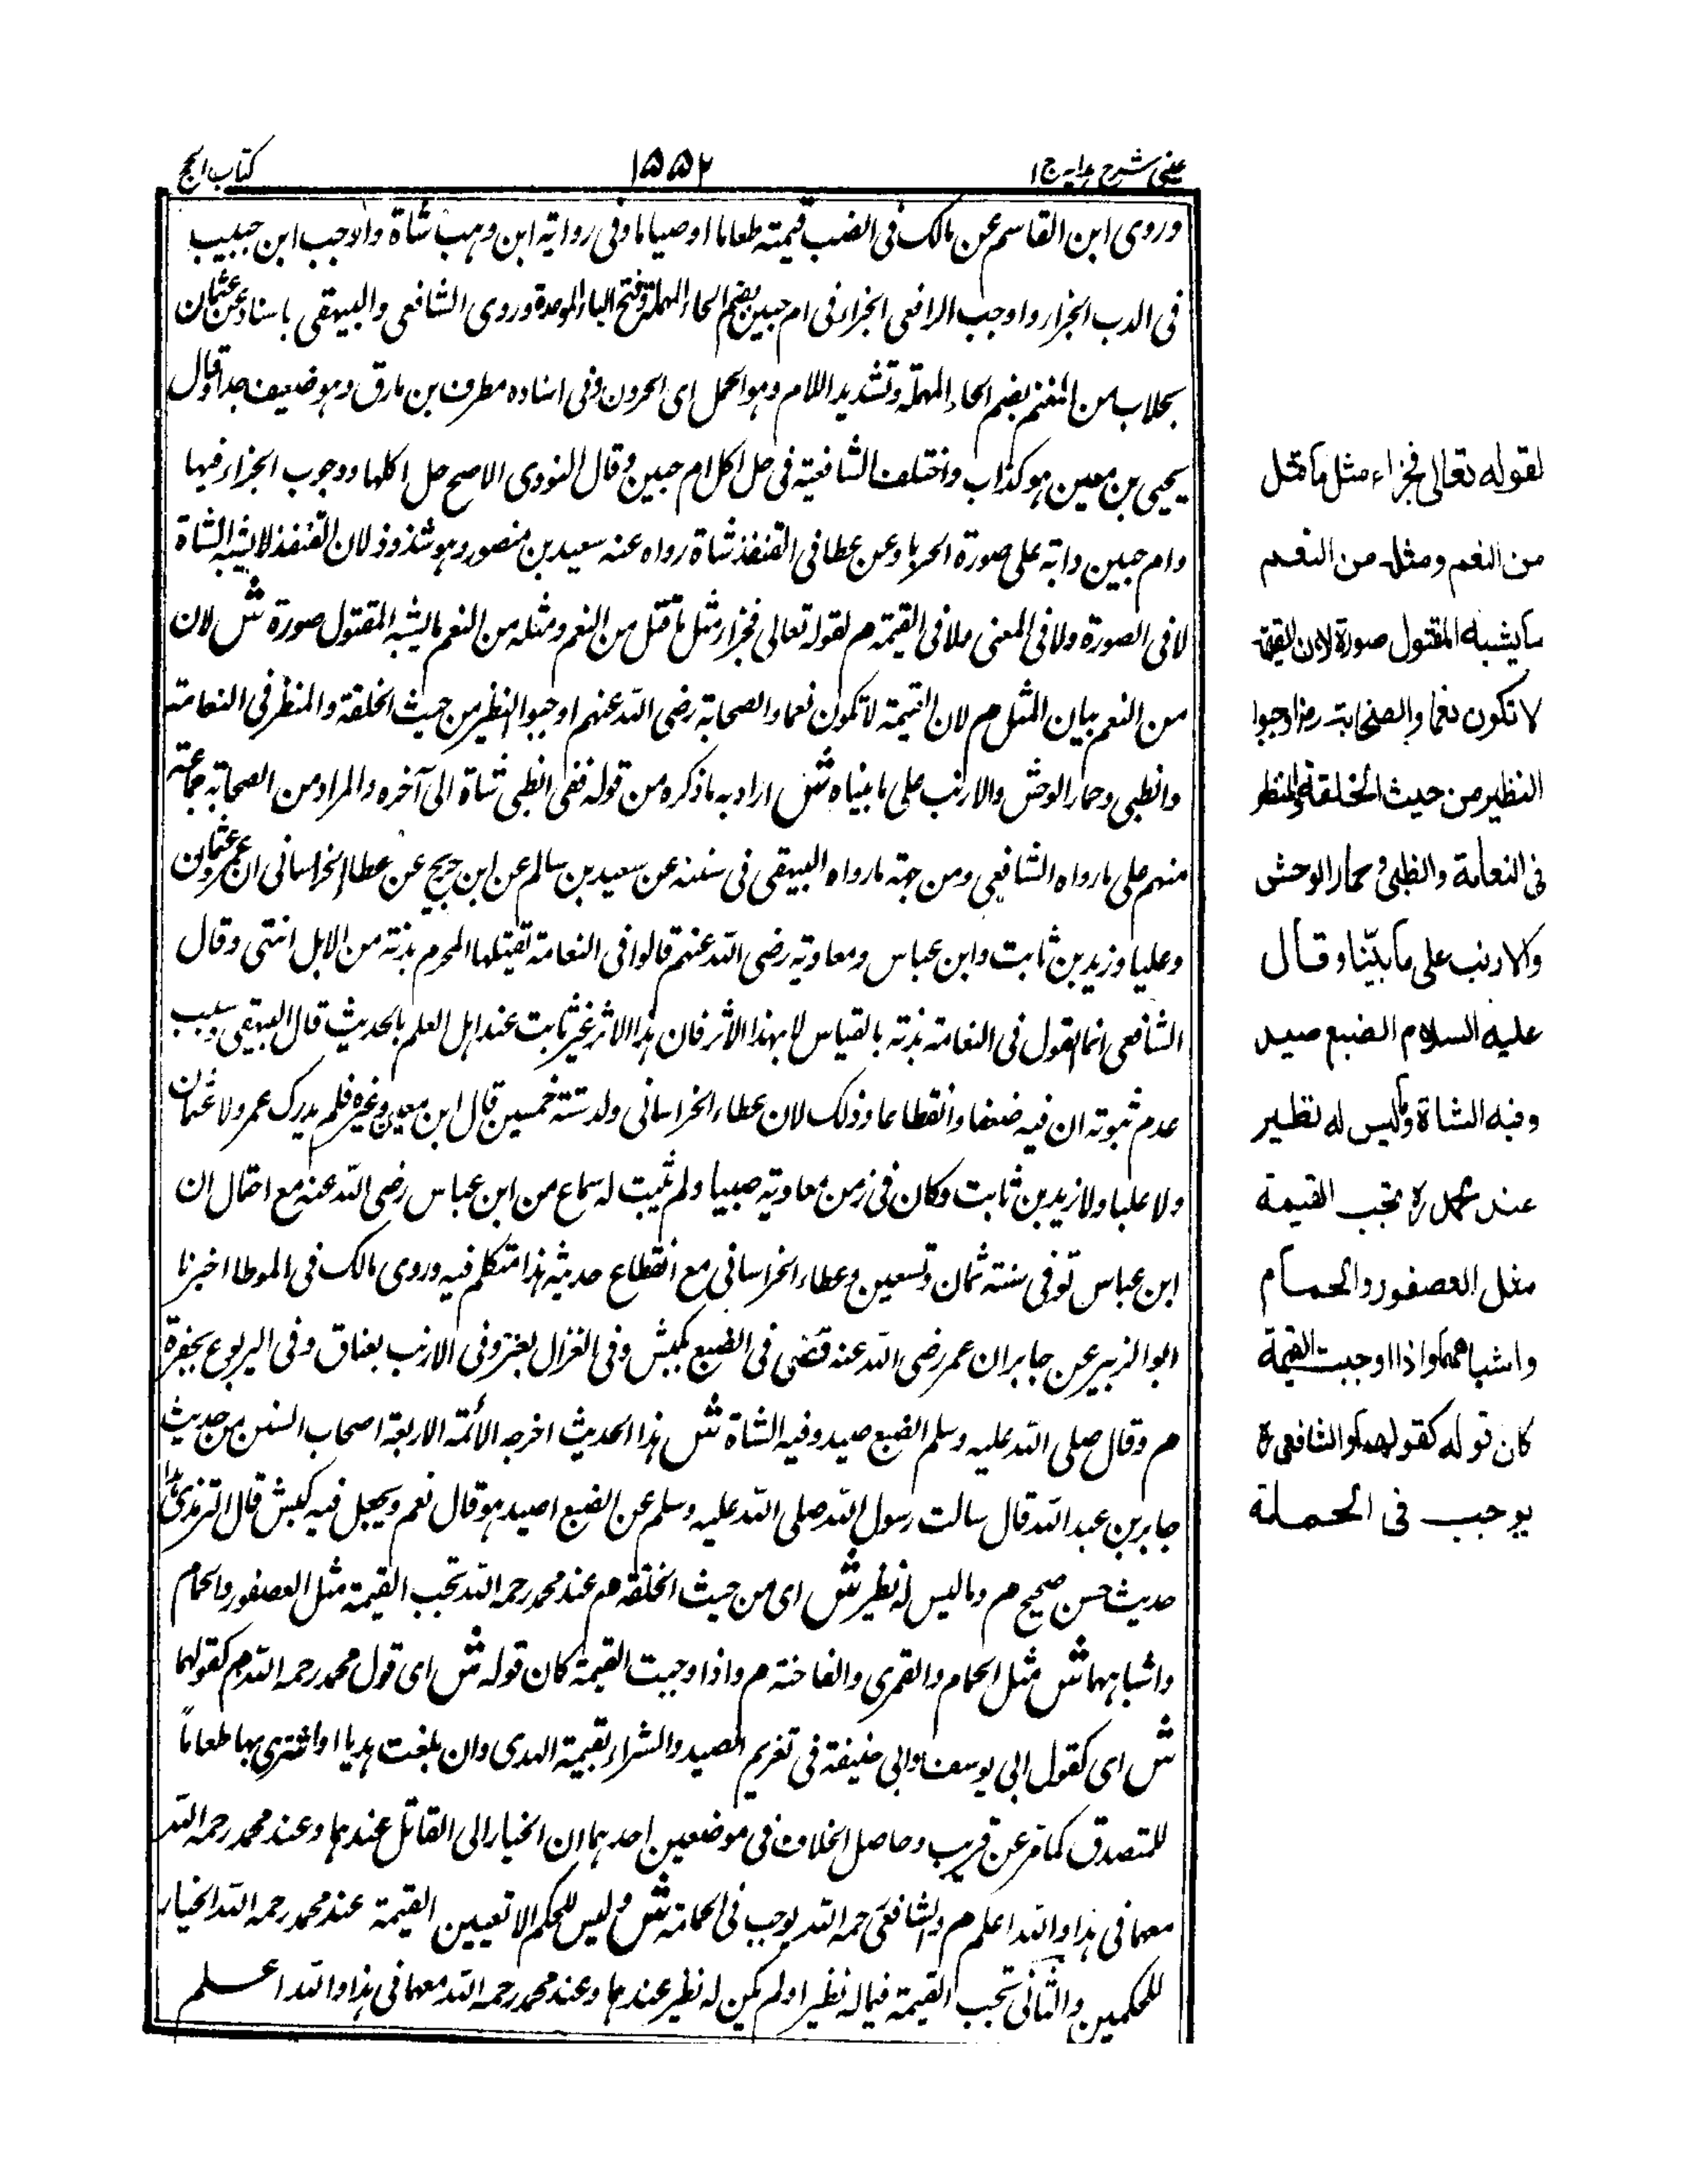 عينى شرح هدايه ج ١
١٥٥٢
كتاب الحج
وروى ابن القاسم عن مالك فى الضب قيمته طعاما او صياما وفى رواية ابن وهب شاة واوجب ابن حبيب
فى الدب الجزاء واوجب الرافعى الجزاء فى ام حبين بضم الحاء المهملة وفتح الباء الموحدة وروى الشافعى والبيهقى باسناده عن عثمان
بحلاب من الغنم بضم الحاء المهملة وتشديد اللام وهو الحمل اى الحرون وفى اسناده مطرف بن مارق وهو ضعيف جدا وقال
يحيى بن معين هو كذاب واختلف الشافعية فى حل اكل ام حبين وقال النووى الاصح حل اكلها ووجوب الجزاء فيها
وام حبين دابة على صورة الحرباء وعن عطا فى القنفذ شاة رواه عنه سعيد بن منصور وهو شذوذ لان القنفذ لا يشبه الشاة
لا فى الصورة ولا فى المعنى ولا فى القيمة م لقوله تعالى فجزاء مثل ما قتل من النعم ومثله من النعم ما يشبه المقتول صورة ش لان
من النعم بيان المثل م لان القيمة لا تكون نعما والصحابة رضى الله عنهم اوجبوا النظير من حيث الخلقة والمنظر فى النعامة
والظبى وحمار الوحش والارنب على ما بيناه ش اراد به ما ذكره من قوله ففى الظبى شاة الى آخره والمراد من الصحابة جماعة
منهم على ما رواه الشافعى ومن جهته ما رواه البيهقى فى سننه عن سعيد بن سالم عن ابن جريج عن عطاء الخراسانى ان عمر وعثمان
وعليا وزيد بن ثابت وابن عباس ومعاوية رضى الله عنهم قالوا فى النعامة تقتلها المحرم بدنة من الابل انتهى وقال
الشافعى انما القول فى النعامة بدنة بالقياس لا بهذا الاثر فان هذا الاثر غير ثابت عند اهل العلم بالحديث قال البيهقى وسبب
عدم ثبوته ان فيه ضعفا وانقطاعا وذلك لان عطاء الخراسانى ولد سنة خمسين قال ابن معين وغيره فلم يدرك عمر ولا عثمان
ولا عليا ولا زيد بن ثابت وكان فى زمن معاوية صبيا ولم يثبت له سماع من ابن عباس رضى الله عنه مع احتمال ان
ابن عباس توفى سنة ثمان وتسعين وعطاء الخراسانى مع انقطاع حديثه هذا متكلم فيه وروى مالك فى الموطا اخبرنا
ابو الزبير عن جابر ان عمر رضى الله عنه قضى فى الضبع بكبش وفى الغزال بعنز وفى الارنب بعناق وفى اليربوع بجفرة
م وقال صلى الله عليه وسلم الضبع صيد وفيه الشاة ش هذا الحديث اخرجه الأئمة الاربعة اصحاب السنن من حديث
جابر بن عبد الله قال سالت رسول الله صلى الله عليه وسلم عن الضبع اصيد هو قال نعم ويجعل فيه كبش قال الترمذى هذا
حديث حسن صحيح م وما ليس له نظير ش اى من حيث الخلقة م عند محمد رحمه الله تجب القيمة مثل العصفور والحمام
واشباههما ش مثل الحمام والقمرى والفاختة م واذا وجبت القيمة كان قوله ش اى قول محمد رحمه الله م كقولهما
ش اى كقول ابى يوسف وابى حنيفة فى تغريم الصيد والشراء بقيمة الهدى وان بلغت هديا او اشترى بها طعاماً
للتصدق كما مر عن قريب وحاصل الخلاف فى موضعين احدهما ان الخيار الى القاتل عندهما وعند محمد رحمه الله
معهما فى هذا والله اعلم م والشافعى رحمه الله يوجب فى الحمامة ش وليس للحكم الا تعيين القيمة عند محمد رحمه الله الخيار
للحكمين والثانى تجب القيمة فيما له نظير او لم يكن له نظير عندهما وعند محمد رحمه الله معهما فى هذا والله اعلم
لقوله تعالى فجزاء مثل ما قتل
من النعم ومثله من النعم
ما يشبه المقتول صورة لان القيمة
لا تكون نعما والصحابة رض اوجبوا
النظير من حيث الخلقة والمنظر
فى النعامة والظبى وحمار الوحش
والارنب على ما بيّنا وقال
عليه السلام الضبع صيد
وفيه الشاة وما ليس له نظير
عند محمد رح تجب القيمة
مثل العصفور والحمام
واشباههما واذا اوجبت القيمة
كان قوله كقولهما والشافعى رح
يوجب فى الحمامة